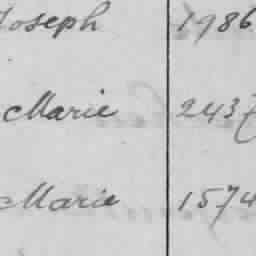 Joseph 1986
Marie 2437
Marie 1574